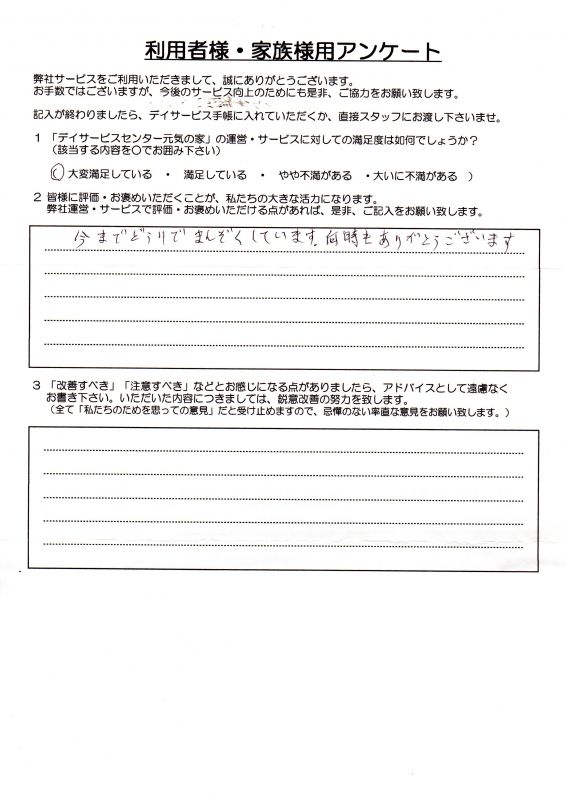 利用者様・家族様用アンケート
弊社サービスをご利用いただきまして、誠にありがとうございます。
お手数ではございますが、今後のサービス向上のためにも是非、ご協力をお願い致します。
記入が終わりましたら、デイサービス手帳に入れていただくか、直接スタッフにお渡し下さいませ。
1 「デイサービスセンター元気の家」の運営・サービスに対しての満足度は如何でしょうか？
（該当する内容を〇でお囲み下さい）
（ 大変満足している ・ 満足している ・ やや不満がある ・大いに不満がある ）
2 皆様に評価・お褒めいただくことが、私たちの大きな活力になります。
弊社運営・サービスで評価・お褒めいただける点があれば、是非、ご記入をお願い致します。
今までどうりでまんぞくしています。何時もありがとうございます
3 「改善すべき」「注意すべき」などとお感じになる点がありましたら、アドバイスとして遠慮なく
お書き下さい。いただいた内容につきましては、鋭意改善の努力を致します。
（全て「私たちのためを思っての意見」だと受け止めますので、忌憚のない率直な意見をお願い致します。）